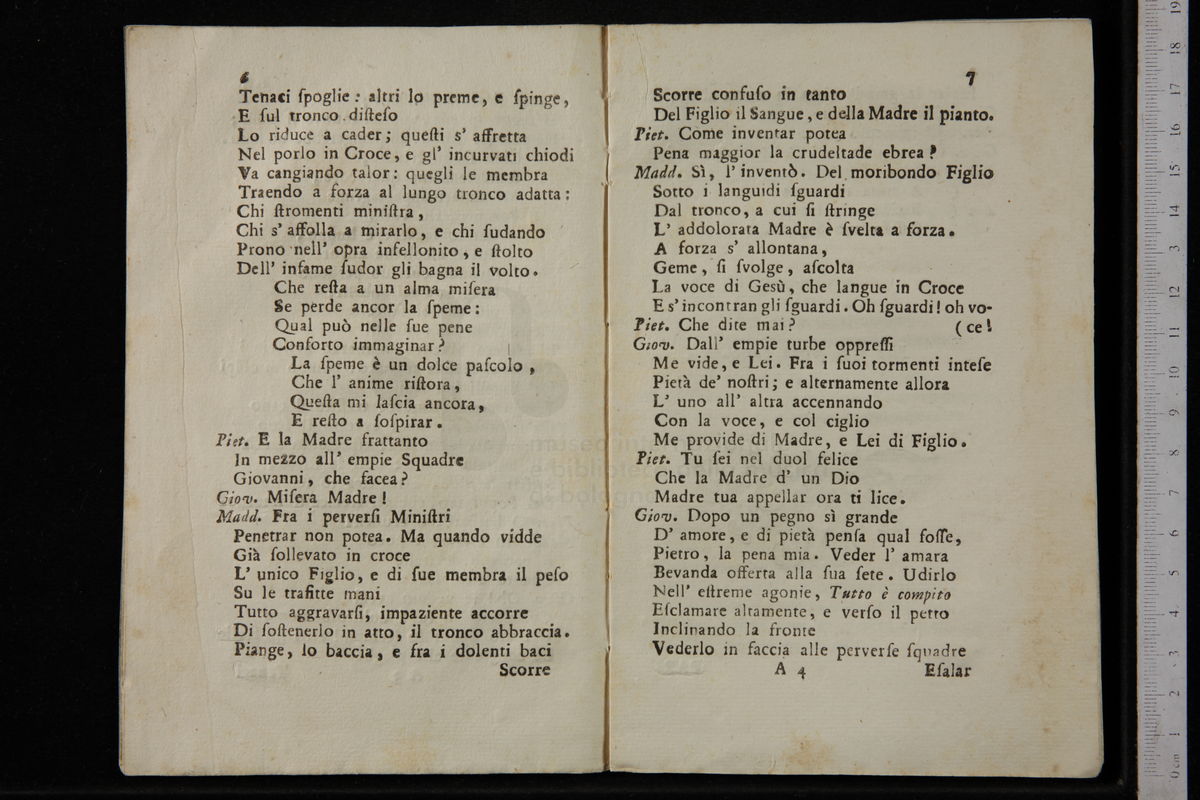 6
Tenaci ſpoglie: altri lo preme, e ſpinge,
E ſul tronco diſteſo
Lo riduce a cader; queſti s' affretta
Nel porlo in Croce, e gl' incurvati chiodi
Va cangiando talor: quegli le membra
Traendo a forza al lungo tronco adatta:
Chi ſtromenti miniſtra,
Chi s' affolla a mirarlo, e chi ſudando
Prono nell' opra infellonito, e ſtolto
Dell' infame ſudor gli bagna il volto.
Che reſta a un alma miſera
Se perde ancor la ſpeme:
Qual può nelle ſue pene
Conforto immaginar?
La ſpeme è un dolce paſcolo,
Che l' anime riſtora,
Queſta mi laſcia ancora,
E reſto a ſoſpirar.
Piet. E la Madre frattanto
In mezzo all' empie Squadre
Giovanni, che facea?
Giov. Miſera Madre!
Madd. Fra i perverſi Miniſtri
Penetrar non potea. Ma quando vidde
Già ſollevato in croce
L' unico Figlio, e di ſue membra il peſo
Su le trafitte mani
Tutto aggravarſi, impaziente accorre
Di ſoſtenerlo in atto, il tronco abbraccia.
Piange, lo baccia, e fra i dolenti baci
Scorre
7
Scorre confuſo in tanto
Del Figlio il Sangue, e della Madre il pianto.
Piet. Come inventar potea
Pena maggior la crudeltade ebrea?
Madd. Sì, l' inventò. Del moribondo Figlio
Sotto i languidi ſguardi
Dal tronco, a cui ſi ſtringe
L' addolorata Madre è ſvelta a forza.
A forza s' allontana,
Geme, ſi ſvolge, aſcolta
La voce di Gesù, che langue in Croce
E s' incontran gli ſguardi. Oh ſguardi! oh vo-
Piet. Che dite mai? (ce!
Giov. Dall' empie turbe oppreſſi
Me vide, e Lei. Fra i ſuoi tormenti inteſe
Pietà de' noſtri; e alternamente allora
L' uno all' altra accennando
Con la voce, e col ciglio
Me provide di Madre, e Lei di Figlio.
Piet. Tu ſei nel duol felice
Che la Madre d' un Dio
Madre tua appellar ora ti lice.
Giov. Dopo un pegno sì grande
D' amore, e di pietà penſa qual foſſe,
Pietro, la pena mia. Veder l' amara
Bevanda offerta alla ſua ſete. Udirlo
Nell' eſtreme agonie, Tutto è compito
Eſclamare altamente, e verſo il petto
Inclinando la fronte
Vederlo in faccia alle perverſe ſquadre
A 4 Eſalar